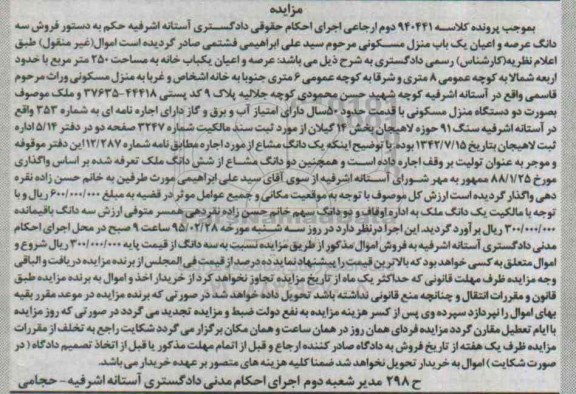 مزایده
بموجب پرونده کلاسه ۹۴۰۴۴۱ دوم ارجاعی اجرای احکام حقوقی دادگستری آستانه اشرفیه حکم به دستور فروش سه
دانگ عرصه و اعیان یک باب منزل مسکونی مرحوم سید علی ابراهیمی فشتمی صادر گردیده است اموال(غیر منقول) طبق
اعلام نظریه(کارشناس) رسمی دادگستری به شرح ذیل می باشد: عرصه و اعیان یکباب خانه به مساحت ۲۵۰ متر مربع با حدود
اربعه شمالا به کوچه عمومی ۸ متری و شرقا به کوچه عمومی ۶ متری جنوبا به خانه اشخاص و غربا به منزل مسکونی وراث مرحوم
قاسمی واقع در آستانه اشرفیه کوچه شهید حسن محمودی کوچه جلالیه پلاک ۹ کد پستی ۴۴۴۱۸-۳۷۶۳۵ و ملک موصوف
بصورت دو دستگاه منزل مسکونی با قدمت حدود ۵۰سال دارای امتیاز آب و برق و گاز دارای اجاره نامه ای به شماره ۳۵۳ واقع
در آستانه اشرفیه سنگ ۹۱ حوزه لاهیجان بخش ۱۴ گیلان از مورد ثبت سند مالکیت شماره ۳۲۴۷ صفحه دو در دفتر ۵/۱۴ اداره
ثبت لاهیجان بتاریخ ۱۳۴۲/۷/۱۵ بوده. با توضیح اینکه یک دانگ مشاع از مورد اجاره مطابق نامه شماره ۱۲/۲۸۷ این دفتر موقوفه
و موجر به عنوان تولیت بر وقف اجاره داده است و همچنین دو دانگ مشاع از شش دانگ ملک تعرفه شده بر اساس واگذاری
مورخ ۸۸/۱/۲۵ ممهور به مهر شورای آستانه اشرفیه از سوی آقای سید علی ابراهیمی مورث طرفین به خانم حسن زاده نقره
دهی واگذار گردیده است ارزش کل موصوف با توجه به موقعیت مکانی و جمیع عوامل موثر در قضیه به مبلغ ۶۰۰/۰۰۰/۰۰۰ ریال و با
توجه با مالکیت یک دانگ ملک به اداره اوقاف و دو دانگ سهم خانم حسن زاده نقردهی همسر متوفی ارزش سه دانگ باقیمانده
۳۰۰/۰۰۰/۰۰۰ ریال برآورد گردید. این اجرا در نظر دارد در روز سه شنبه مورخه ۹۵/۰۲/۲۸ ساعت ۹ صبح در محل اجرای احکام
مدنی دادگستری آستانه اشرفیه به فروش اموال مذکور از طریق مزایده نسبت به سه دانگ از قیمت پایه ۳۰۰/۰۰۰/۰۰۰ ریال شروع و
اموال متعلق به کسی خواهد بود که بالاترین قیمت را پیشنهاد نماید ده درصد از قیمت فی المجلس از برنده مزایده دریافت و الباقی
وجه مزایده ظرف مهلت قانونی که حداکثر یک ماه از تاریخ مزایده تجاوز نخواهد کرد از خریدار اخذ و اموال به برنده مزایده طبق
قانون و مقررات انتقال و چنانچه منع قانونی نداشته باشد تحویل داده خواهد شد در صورتی که برنده مزایده در موعد مقرر بقیه
بهای اموال را نپردازد سپرده وی پس از کسر هزینه مزایده به نفع دولت ضبط و مزایده تجدید می گردد در صورتی که روز مزایده
با ایام تعطیل مقارن گردد مزایده فردای همان روز در همان ساعت و همان مکان برگزار می گردد شکایت راجع به تخلف از مقررات
مزایده ظرف یک هفته از تاریخ فروش به دادگاه صادر کننده ارجاع و قبل از اتمام مهلت مذکور یا قبل از اتخاذ تصمیم دادگاه ( در
صورت شکایت ) اموال به خریدار تحویل نخواهد شد ضمنا کلیه هزینه های متصور بر عهده خریدار می باشد.
ح ۲۹۸ مدیر شعبه دوم اجرای احکام مدنی دادگستری آستانه اشرفیه- حجامی